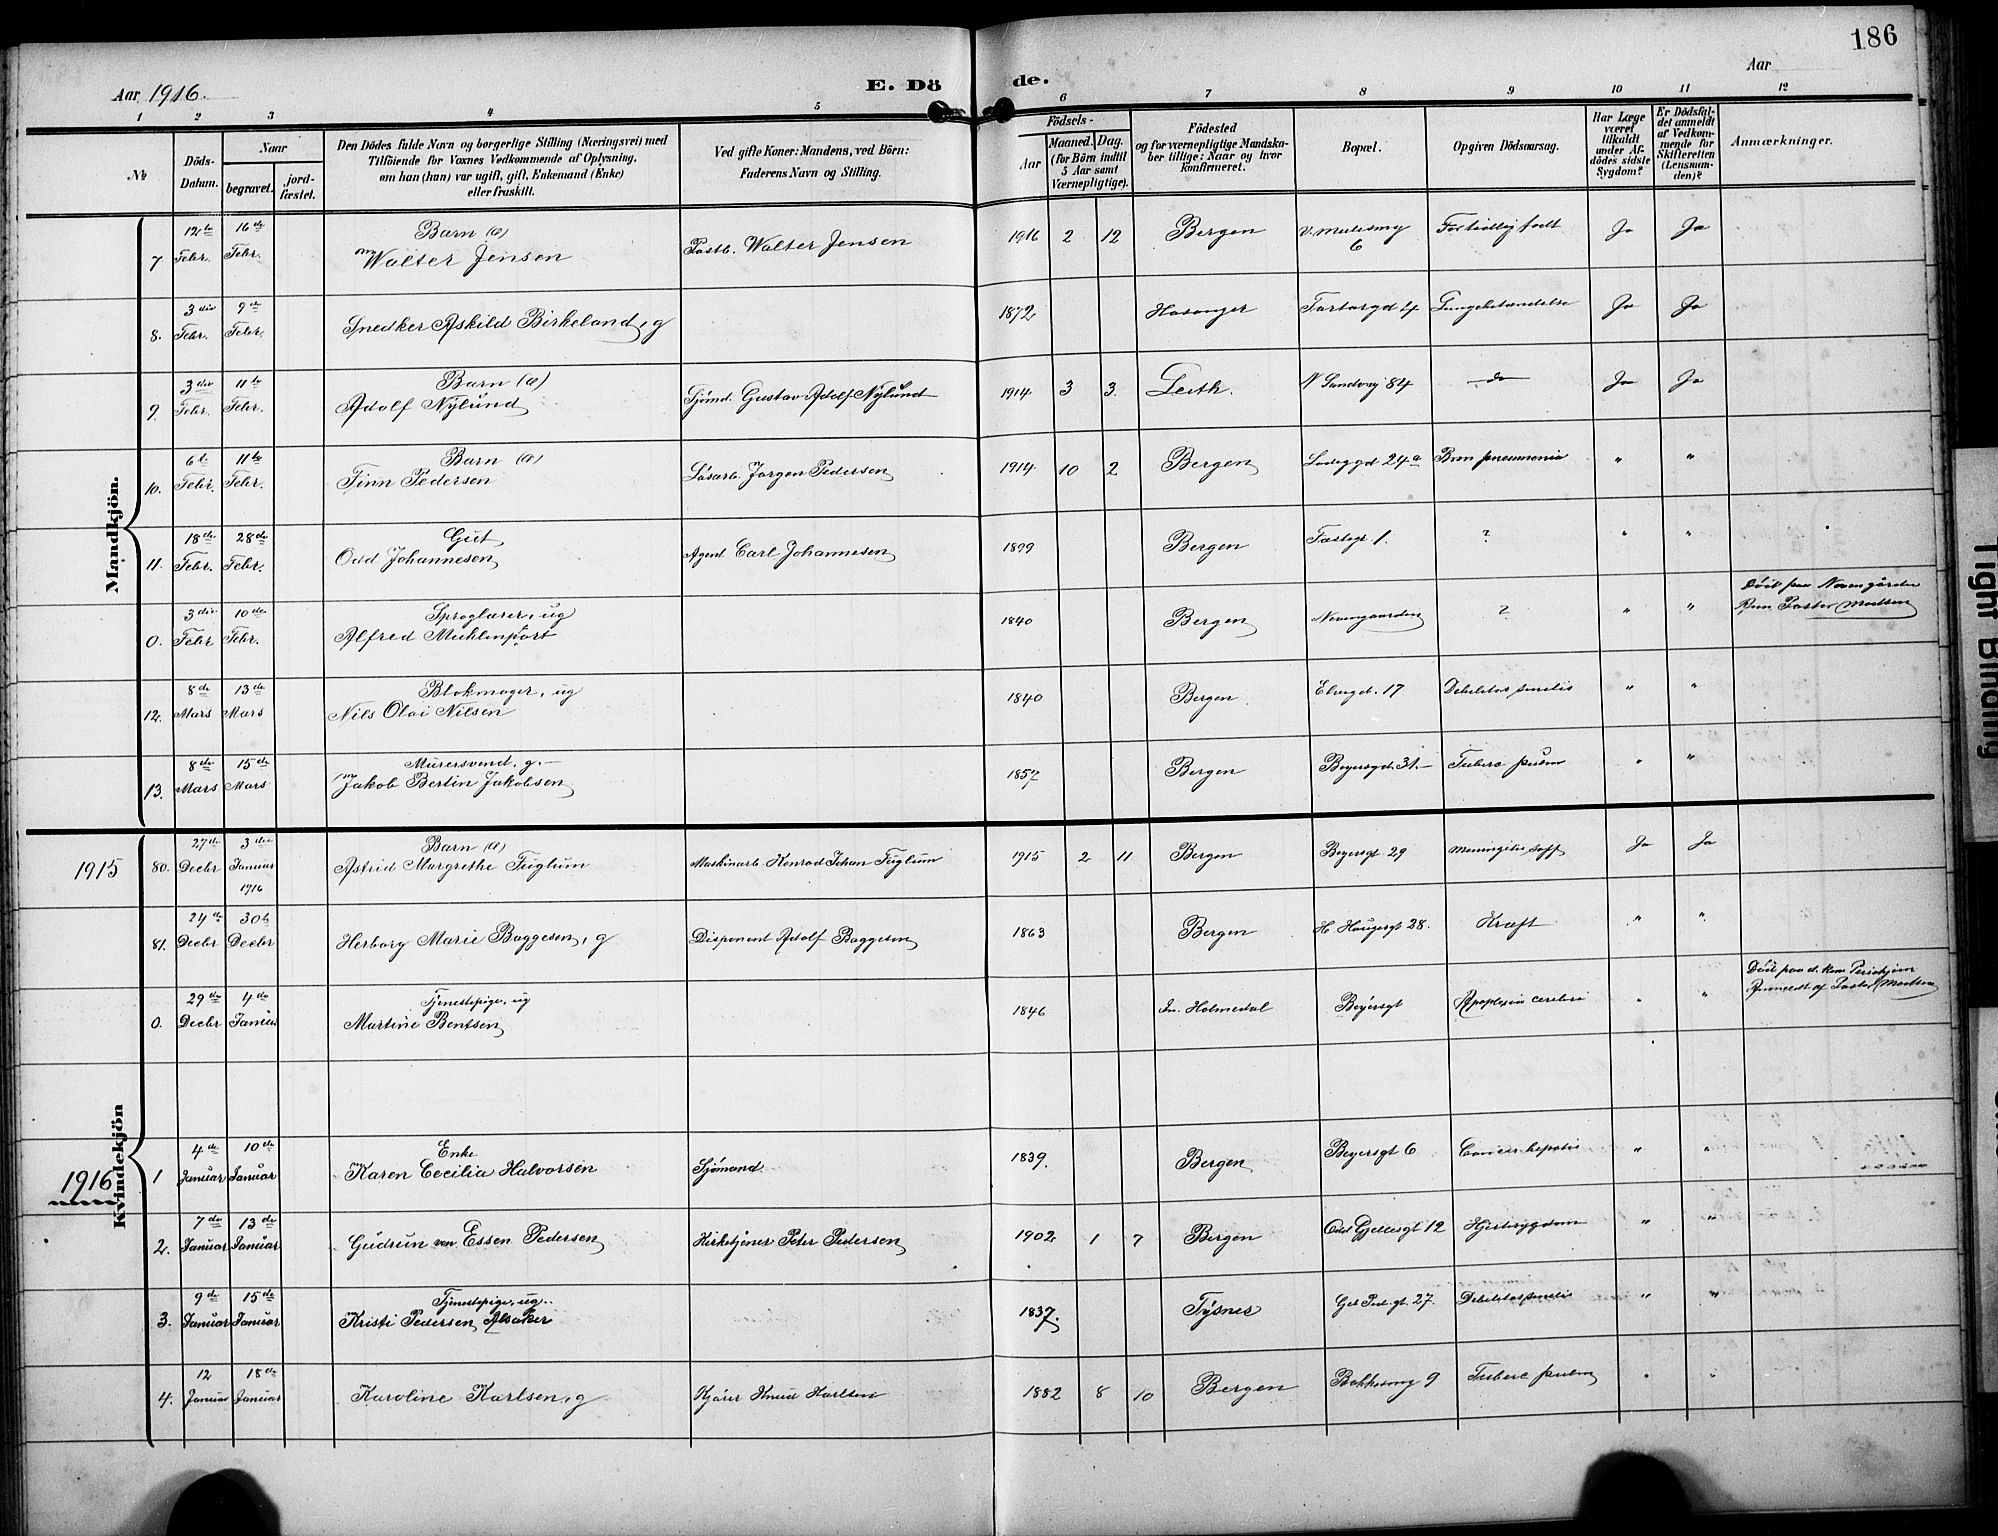 186
Aar 1916.
E. Dö de.
Aar
1 2 3 4 5 6 7 8 9 10 11 12
№
Döds-Datum.
Naar
begravet.
jord-fæstet.
Den Dödes fulde Navn og borgerlige Stilling (Næringsvei) med
Tilföiende for Voxnes Vedkommende af Oplysning,
om han (hun) var ugift, gift, Enkemand (Enke)
eller fraskilt.
Ved gifte Koner: Mandens, ved Börn:
Faderens Navn og Stilling.
Födsels-
Aar
Maaned. Dag.
(for Börn indtil
5 Aar samt
Værnepligtige).
Födested
og for værnepligtige Mandska-
ber tillige: Naar og hvor
Konfirmeret.
Bopæl.
Opgiven Dödsaarsag.
Har Læge
været
tilkaldt
under Af-
dödes sidste
Sygdom?
Er Dödsfal-
det anmeldt
af Vedkom-
mende for
Skifteretten
(Lensman-
den)?
Anmærkninger.
Mandkjön.
12te 16de Barn (æ)
7 Febr. Febr. Walter Jensen Postb. Walter Jensen 1916 2 12 Bergen 6 For tidlig født Ja Ja
3die 9de
8. Febr. Febr. Snedker Askild Birkeland, g 1872 Hosanger Tartargd 4 Lungebetændelse Ja Ja
3die 11te Barn (æ)
9 Febr. Febr. Adolf Nylund Sjømd. Gustav Adolf Nylund 1914 3 3. Leith. N Sandvig 84 do Ja Ja
6te 11te Barn (æ)
10. Febr. Febr. Finn Pedersen Løsarb. Jørgen Pedersen 1914 10 2 Bergen 24a Bron pneumonia " "
18de 28de Gut
11. Febr. Febr. Odd Johannesen Agent Carl Johannesen 1899 Bergen 1. ? " "
3die 10de Sproglærer, ug Død paa Nevengården
0. Febr Febr. Alfred Muhlenpfort 1840 Bergen Nevengaarden ? " " Anm Pastor Madsen
8de 13de Blokmager, ug
12. Mars Mars Nils Olai Nilsen 1840 Bergen. 17 Debilitas senilis " "
8de 15de Murersvend, g.
13. Mars Mars Jakob Bertin Jakobsen 1857 Bergen Beyersgd. 31. Tuberc pulm " "
Kvindekjön
1915
27de 3die Barn (æ)
80. Decbr Januar Astrid Margrethe Fuglum Maskinarb. Konrad Johan Fuglum 1915 2 11 Bergen Beyersgt 29 Meningitis Ja Ja
1916
24de 30te
81. Decbr Decbr Herborg Marie Baggesen, g Disponent Adolf Baggesen 1863 Bergen H Haugesgt 28. Kræft " "
29de 4de Tjenestepige, ug
0. Decbr Januar Martine Bentsen 1846 In. Holmedal Beyersgt Apoplexia cerebri " " Anmeldt af Pastor Madsen
1916
4de 10de Enke
1 Januar Januar Karen Cecilia Halvorsen Sjømand 1839. Bergen Beyersgt 6 Cancer hepatis " "
7de 13de
2. Januar Januar Gudrun von Essen Pedersen Kirketjener Peter Pedersen 1902 1 7 Bergen Odd Gjellesgt 12 Hjertesygdom " "
9de 15de Tjenestepige, ug.
3. Januar Januar Kristi Pedersen Alsaker 1837. Tysnes 27. Debilitas senilis " "
12 18de
4. Januar Januar Karoline Karlsen, g Kjører Knud Karlsen 1882 8 10 Bergen 9 Tuberc pulm " "
Tight Binding